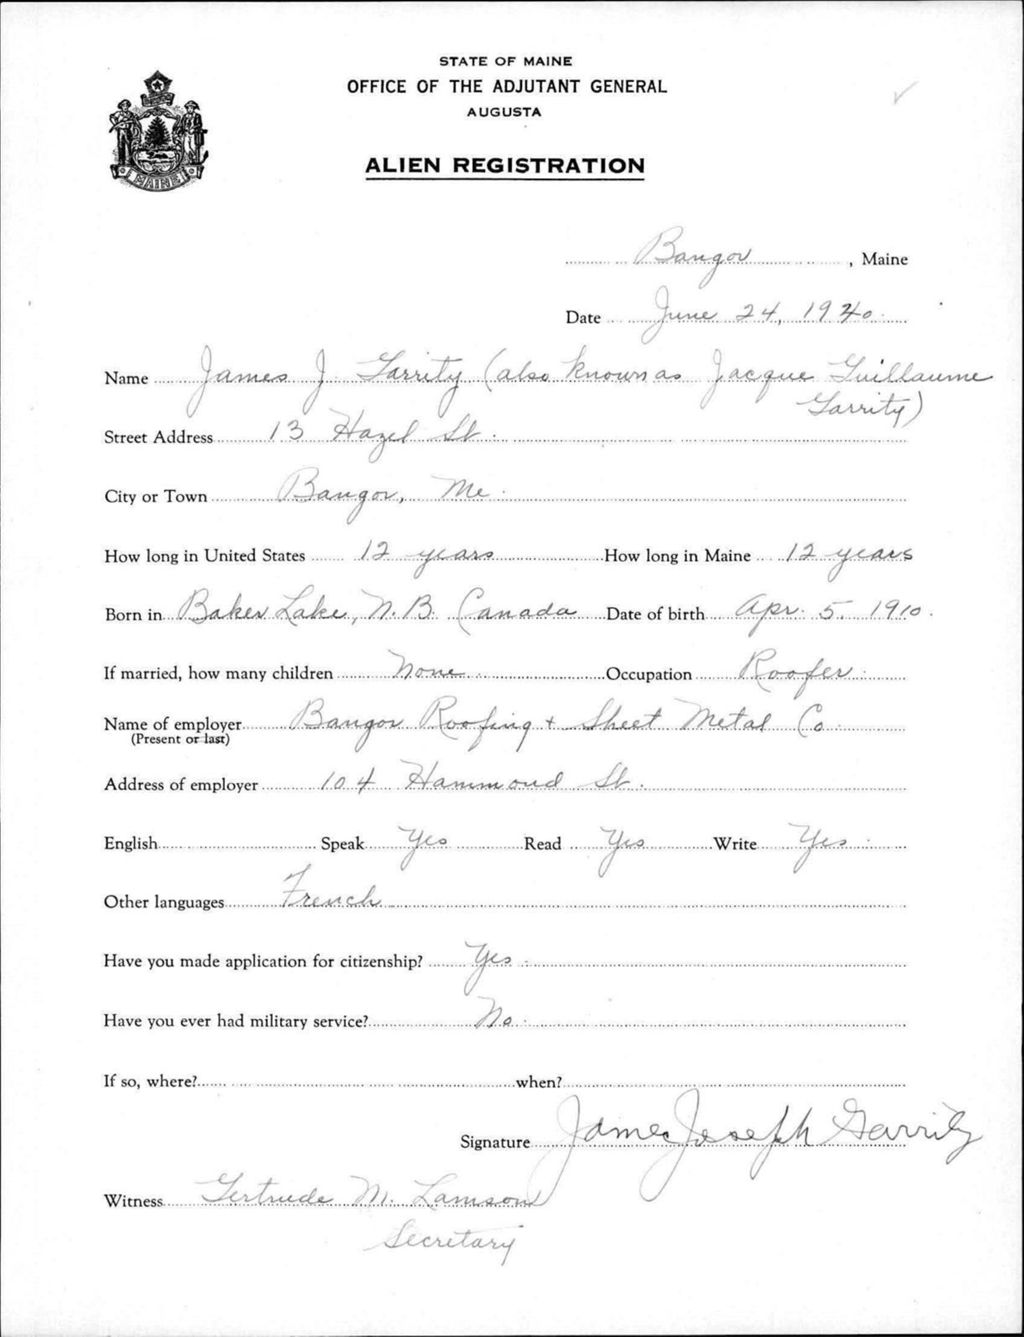 STATE OF MAINE
OFFICE OF THE ADJUTANT GENERAL
AUGUSTA
ALIEN REGISTRATION
MAINE
Bangor, Maine
Date June 24, 1940
Name James J. Garrity (also known as Jacque Guillaume
Garrity)
Street Address 13 Hazel St.
City or Town Bangor, Me.
How long in United States 12 years How long in Maine 12 years
Born in Baker Lake, N.B. Canada Date of birth Apr. 5, 1910.
If married, how many children None Occupation Roofer
Name of employer Bangor Roofing + Sheet Metal Co.
(Present or last)
Address of employer 104 Hammond St.
English Speak Yes Read Yes Write Yes
Other languages French
Have you made application for citizenship? Yes
Have you ever had military service? No
If so, where? when?
Signature James Joseph Garrity
Witness Gertrude M. Lamson
Secretary